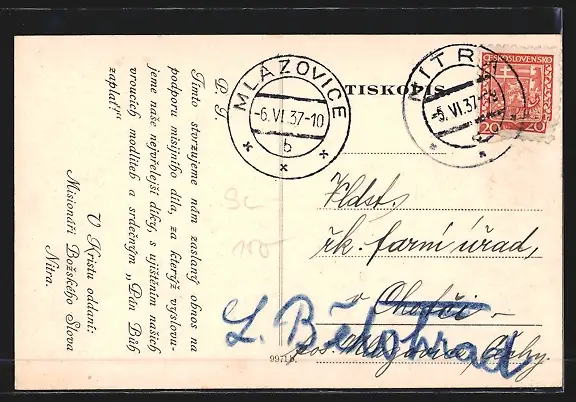 P. T.
Tímto stvrzujeme nám zaslaný obnos na
podporu misijního díla, za kterýž vyslovu-
jeme naše nejvřelejší díky, s ujištěním našich
vroucích modliteb a srdečným „Pán Bůh
zaplať!“
V Kristu oddaní:
Misionáři Božského Slova
Nitra.
MLÁZOVICE
-6.VI.37-10
b
TISKOPIS
NITRA
-5.VI.37
ČESKOSLOVENSKO
20 20
řk. farní úřad,
L. Bělohrad
Čechy.
9971 b.